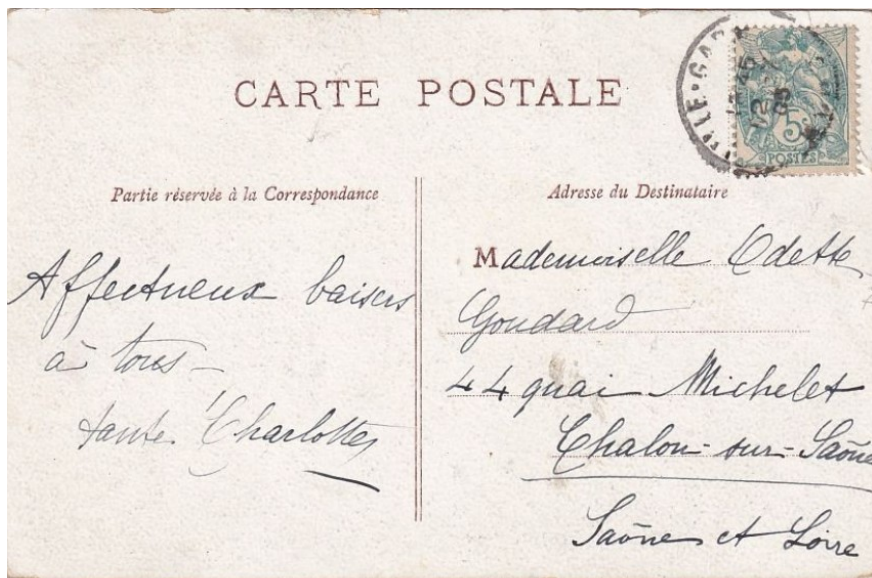 CARTE POSTALE
Partie réservée à la Correspondance
Affectueux baisers
à tous –
tante Charlotte
Adresse du Destinataire
Mademoiselle Odette
Goudard
44 quai Michelet
Chalon-sur-Saône
Saône et Loire
5
POSTES